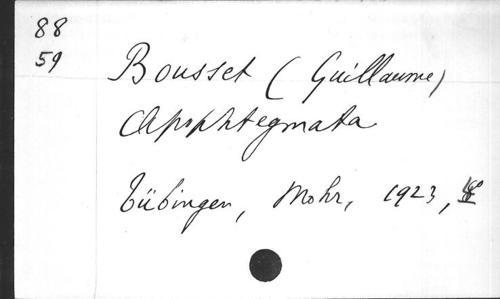 88
59
Bousset (Guillaume)
Apophtegmata
Tübingen, Mohr, 1923,